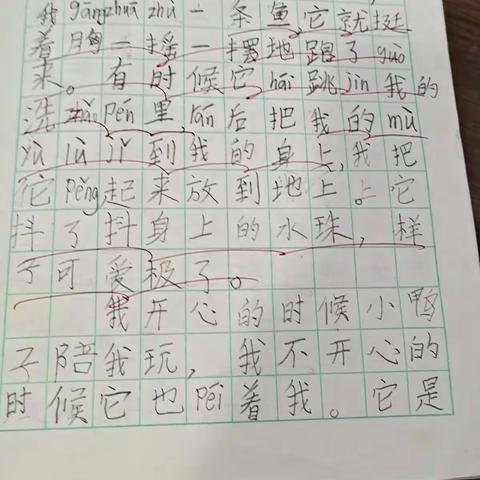 我gāngzhuā zhù一条鱼,它就挺
着胸一摇一摆地跟了guò
来。有时候它hāi跳jìn我的
洗zǎopén里,rán后把我的mù
yù lù jǐ到我的身上,我把
它pěng起来放到地上。它
抖了抖身上的水珠,样
子可爱极了。
我开心的时候小鸭
子陪我玩,我不开心的
时候它也péi着我。它是